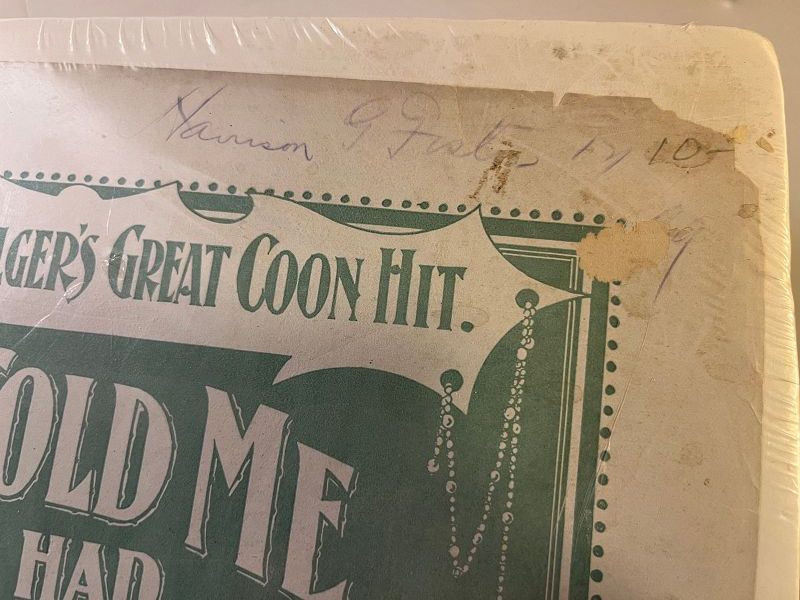 Harrison G Foster 12/10-
99
LGER'S GREAT COON HIT.
TOLD ME
HAD